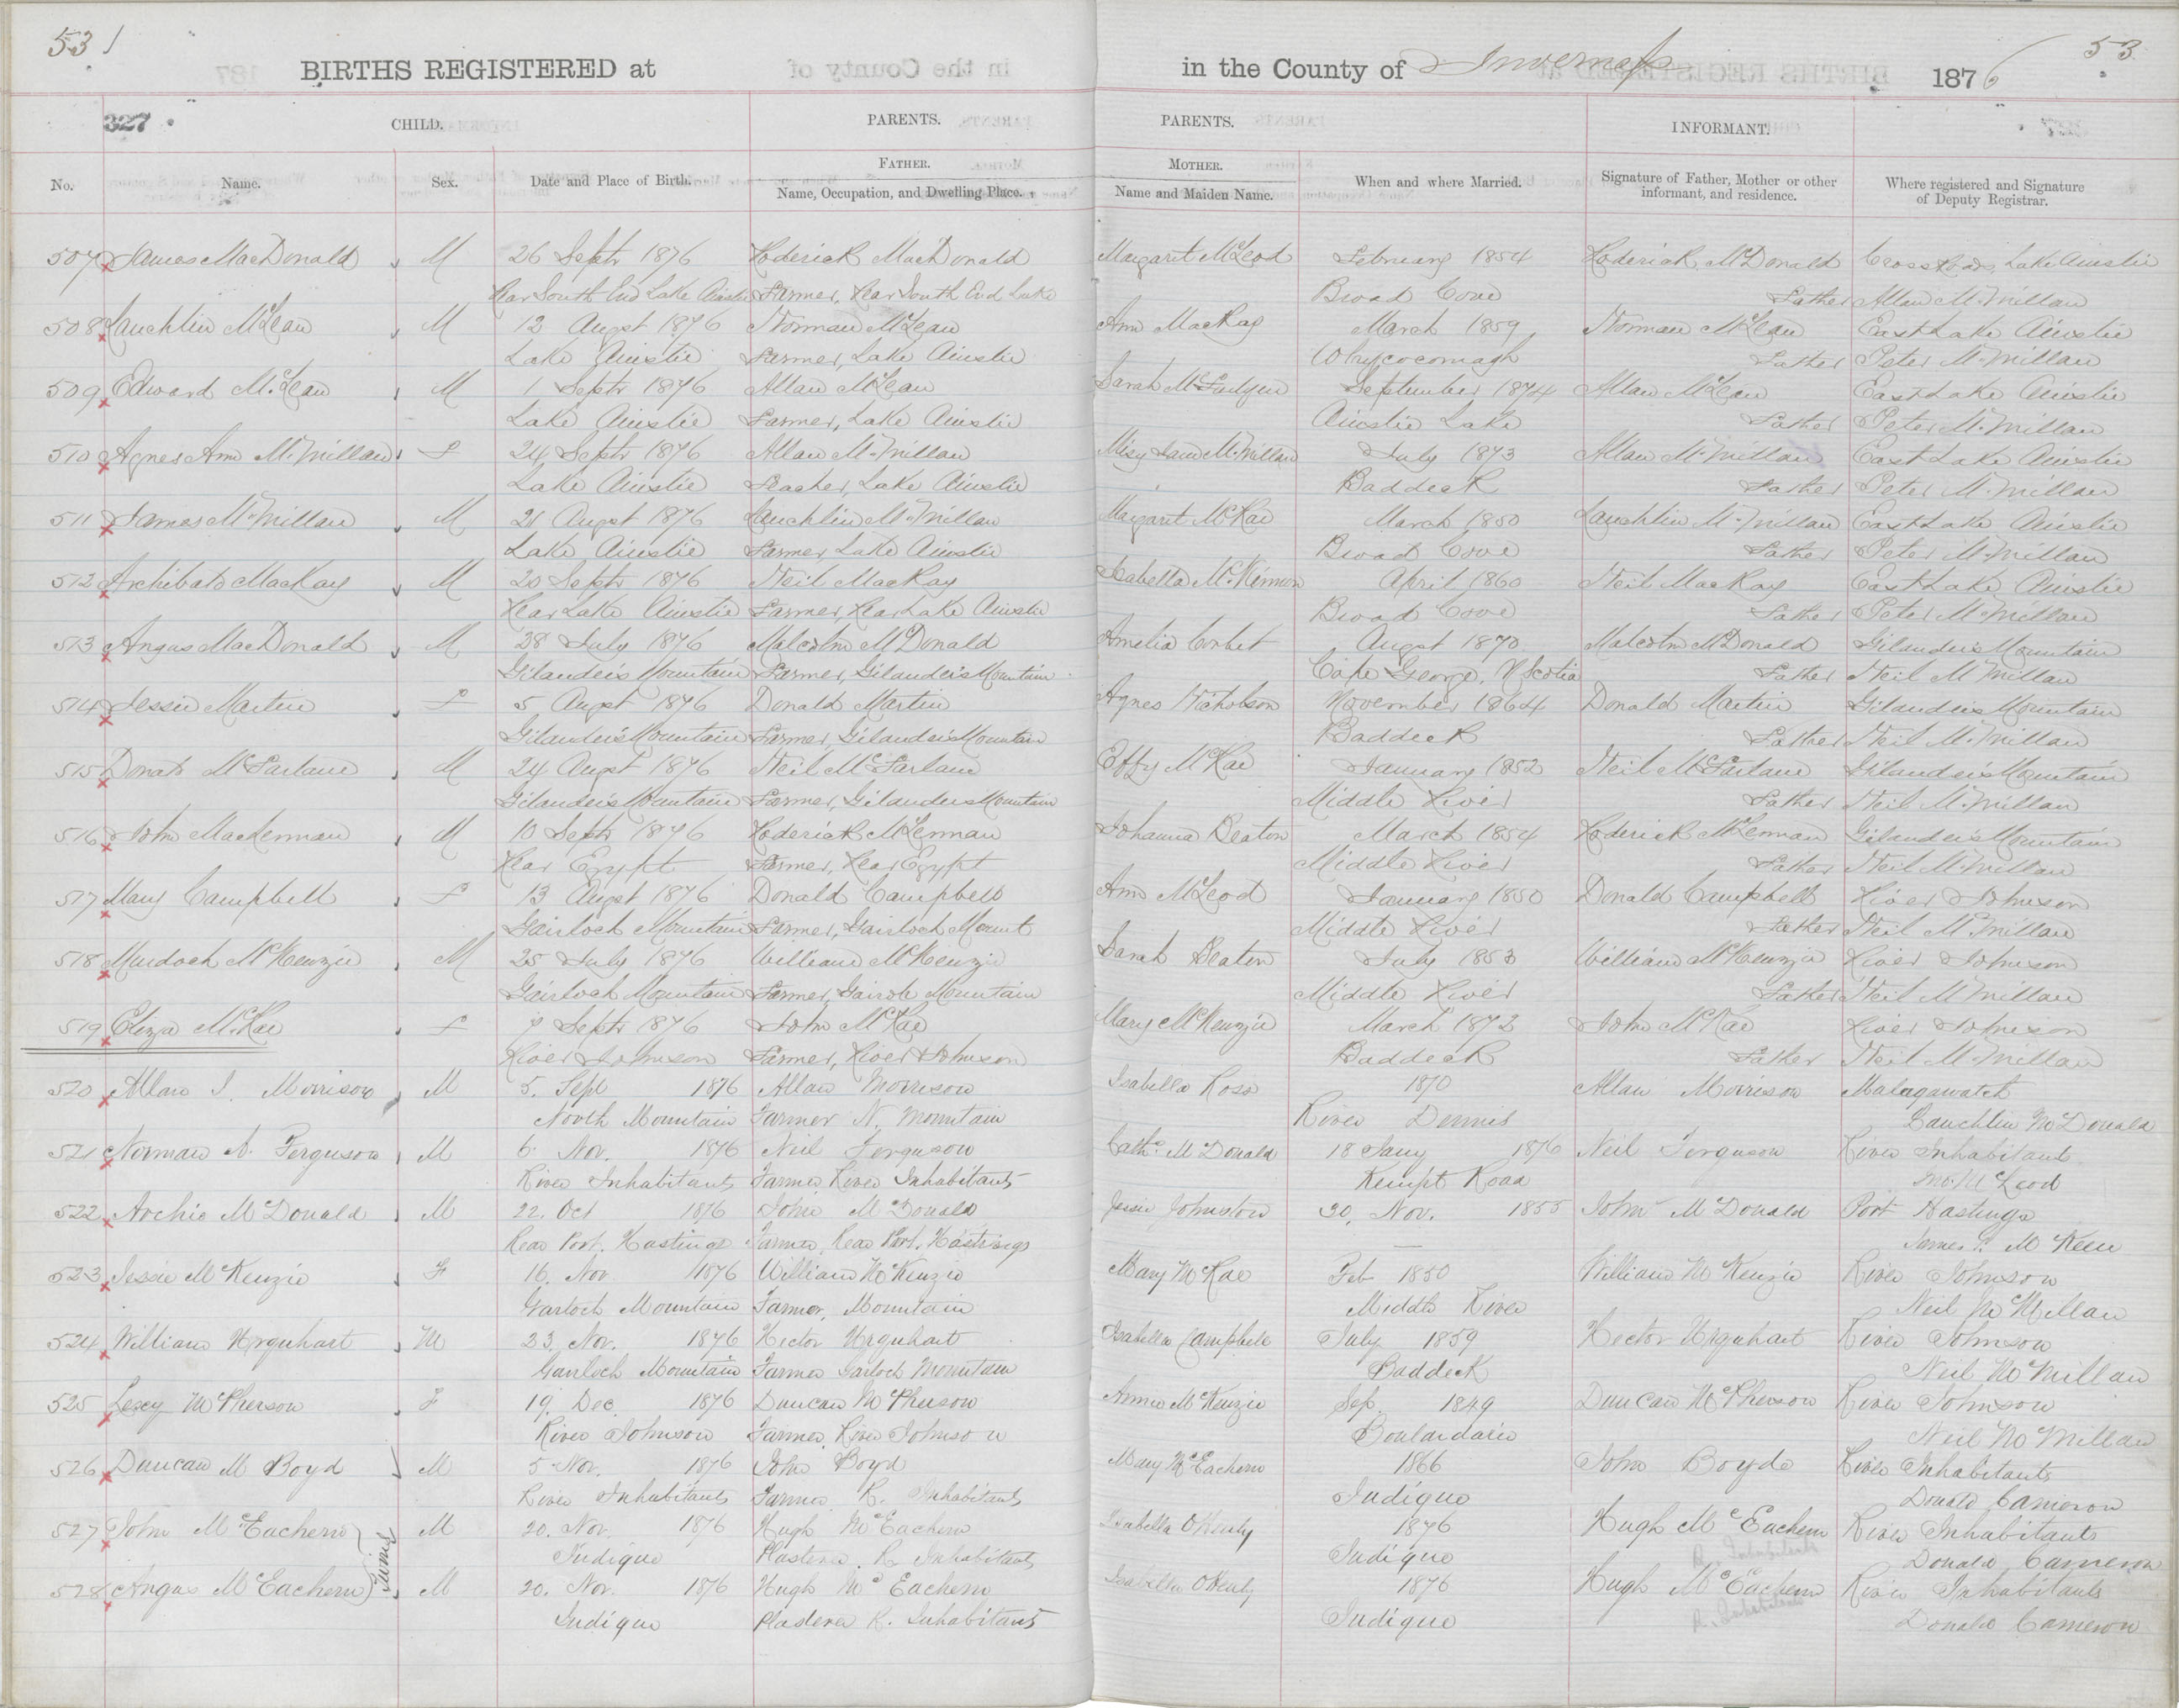 53 /
53
BIRTHS REGISTERED at in the County of Inverness 1876
327
CHILD. PARENTS. PARENTS. INFORMANT.
FATHER. MOTHER.
No. Name. Sex. Date and Place of Birth. Name, Occupation, and Dwelling Place. Name and Maiden Name. When and where Married. Signature of Father, Mother or other informant, and residence. Where registered and Signature of Deputy Registrar.
507 James MacDonald M 26 Septr 1876 Roderick MacDonald Margaret McLeod February 1854 Roderick McDonald Cross Roads, Lake Ainslie
Rear South End Lake Ainslie Farmer, Rear South End Lake Broad Cove Father Allan McMillan
508 Lauchlin McLean M 12 Augst 1876 Norman McLean Ann MacKay March 1859 Norman McLean East Lake Ainslie
Lake Ainslie Farmer, Lake Ainslie Whycocomagh Father Peter McMillan
509 Edward McLean M 1 Septr 1876 Allan McLean Sarah September 1874 Allan McLean East Lake Ainslie
Lake Ainslie Farmer, Lake Ainslie Ainslie Lake Father Peter McMillan
510 Agnes Ann McMillan F 24 Septr 1876 Allan McMillan Jane McMillan July 1873 Allan McMillan East Lake Ainslie
Lake Ainslie Teacher, Lake Ainslie Baddeck Father Peter McMillan
511 James McMillan M 21 Augst 1876 Lauchlin McMillan Margaret McRae March 1850 Lauchlin McMillan East Lake Ainslie
Lake Ainslie Farmer, Lake Ainslie Broad Cove Father Peter McMillan
512 Archibald MacKay M 20 Septr 1876 Neil MacKay Isabella McKinnon April 1860 Neil MacKay East Lake Ainslie
Rear Lake Ainslie Farmer, Rear Lake Ainslie Broad Cove Father Peter McMillan
513 Angus MacDonald M 28 July 1876 Malcolm McDonald Amelia Corbet Augst 1870 Malcolm McDonald Gilanders Mountain
Gilanders Mountain Farmer, Gilanders Mountain Cape George, N Scotia Father Neil McMillan
514 Jessie Martin F 5 Augst 1876 Donald Martin Agnes Nicholson November 1864 Donald Martin Gilanders Mountain
Gilanders Mountain Farmer, Gilanders Mountain Baddeck Father Neil McMillan
515 Donald McFarlane M 24 Augst 1876 Neil McFarlane Effy McRae January 1852 Neil McFarlane Gilanders Mountain
Gilanders Mountain Farmer, Gilanders Mountain Middle River Father Neil McMillan
516 John MacLennan M 10 Septr 1876 Roderick McLennan Johanna Beaton March 1854 Roderick McLennan Gilanders Mountain
Rear Egypt Farmer, Rear Egypt Middle River Father Neil McMillan
517 Mary Campbell F 13 Augst 1876 Donald Campbell Ann McLeod January 1850 Donald Campbell River Johnson
Gairloch Mountain Farmer, Gairloch Mount Middle River Father Neil McMillan
518 Murdoch McKenzie M 25 July 1876 William McKenzie Sarah Beaton July 1853 William McKenzie River Johnson
Gairloch Mountain Farmer, Mountain Middle River Father Neil McMillan
519 Eliza McRae F 7 Septr 1876 John McRae Mary McKenzie March 1872 John McRae River Johnson
River Johnson Farmer, River Johnson Baddeck Father Neil McMillan
520 Allan J. Morrison M 5. Sept 1876 Allan Morrison Isabella Ross 1870 Allan Morrison Malagawatch
North Mountain Farmer N. Mountain River Dennis Lauchlin McDonald
521 Norman A. Ferguson M 6 Nov. 1876 Neil Ferguson Cathe McDonald 18 Jany 1876 Neil Ferguson River Inhabitants
River Inhabitants Farmer River Inhabitants Kempt Road McLeod
522 Archie McDonald M 22. Oct 1876 John McDonald Jessie Johnston 30. Nov. 1855 John McDonald Port Hastings
Rear Port. Hastings Farmer, Rear Port. Hastings — James McKeen
523 Jessie McKenzie F 16. Nov 1876 William McKenzie Mary McRae Feb 1850 William McKenzie River Johnson
Garloch Mountain Farmer, Mountain Middle River Neil McMillan
524 William Urquhart M 23. Nov. 1876 Hector Urquhart Isabella Campbell July 1859 Hector Urquhart River Johnson
Garloch Mountain Farmer Garloch Mountain Baddeck Neil McMillan
525 Lexy McPherson F 19. Dec. 1876 Duncan McPherson Annie McKenzie Sep. 1849 Duncan McPherson River Johnson
River Johnson Farmer, River Johnson Boulardarie Neil McMillan
526 Duncan M Boyd M 5 Nov. 1876 John Boyd Mary McEachern 1866 John Boyd River Inhabitants
River Inhabitants Farmer R. Inhabitants Judique Donald Cameron
527 John McEachern M 20. Nov. 1876 Hugh McEachern Isabella OHenly 1876 Hugh McEachern River Inhabitants
Twins
Judique Plasterer R. Inhabitants Judique R. Inhabitants Donald Cameron
528 Angus McEachern M 20. Nov. 1876 Hugh McEachern Isabella OHenly 1876 Hugh McEachern River Inhabitants
Judique Plasterer R. Inhabitants Judique R. Inhabitants Donald Cameron